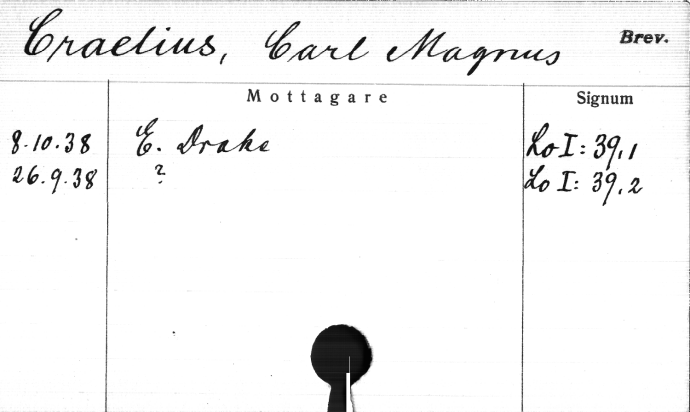 Craelius, Carl Magnus Brev.
Mottagare Signum
8.10.38 E. Drake Lo I: 39,1
26.9.38 ? Lo I: 39,2